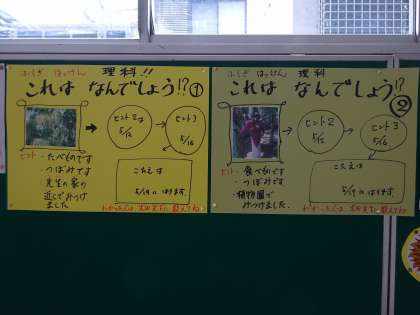 ふしぎ はっけん 理科!!
これは なんでしょう!? ①
ヒント2は
5/12
ヒント3
5/16
ヒント・たべものです
・つぼみです
先生の家の
近くでみつけ
ました
こたえは
5/19にはります。
わかった人は
ふしぎ はっけん 理科
これは なんでしょう!? ②
ヒント2
5/12
ヒント3
5/16
ヒント・食べものです
・つぼみです
・植物園で
みつけました。
こたえは
5/19にはります。
わかった人は